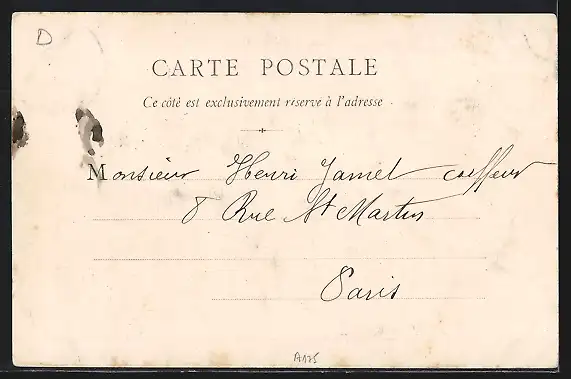 D
CARTE POSTALE
Ce côté est exclusivement réservé à l'adresse
Monsieur Henri Jamet coiffeur
8 Rue St Martin
Paris
A175